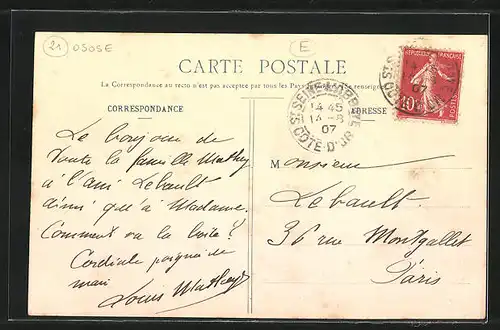 21 OSOSE
E
CARTE POSTALE
La Correspondance au recto n'est pas acceptée par tous les Pays
CORRESPONDANCE
ADRESSE
ST SEINE-L'ABBAYE
14 45
14 -8
07
COTE-D'OR
REPUBLIQUE FRANCAISE
10
POSTES
07
Le bonjour de
toute la famille Mathey
à l'ami Lebault
ainsi qu'à Madame.
Comment va la boîte ?
Cordiale poignée de
main
Louis Mathey
Monsieur
Lebault.
36 rue Montgallet
Paris